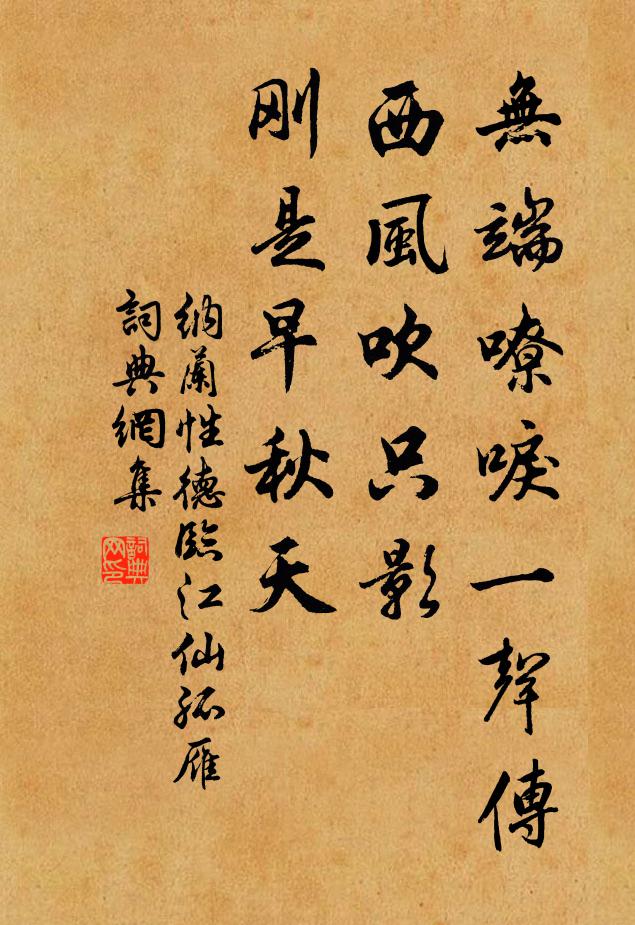 無端嘹唳一聲傳
西風吹只影
刚是早秋天
納蘭性德臨江仙孤雁
詞典網集
詞典
网印